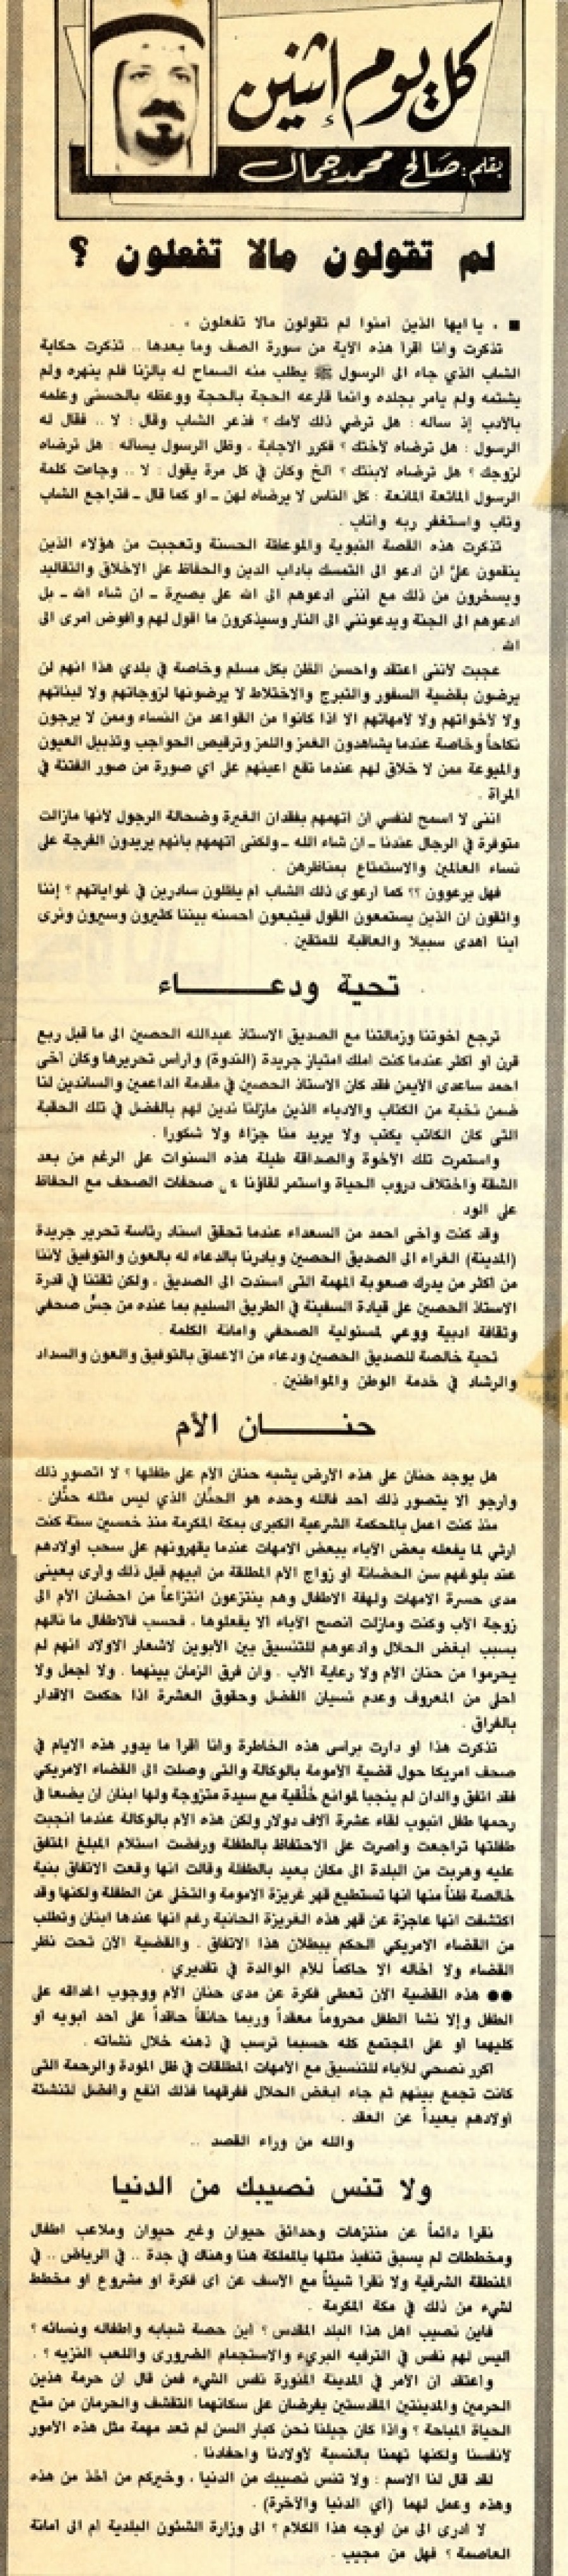 كل يوم إثنين
بقلم : صالح محمد جمال
لم تقولون مالا تفعلون ؟
■ « يا ايها الذين آمنوا لم تقولون مالا تفعلون » .
تذكرت وأنا اقرأ هذه الآية من سورة الصف وما بعدها .. تذكرت حكاية
الشاب الذي جاء الى الرسول ﷺ يطلب منه السماح له بالزنا فلم ينهره ولم
يشتمه ولم يأمر بجلده وانما قارعه الحجة بالحجة ووعظه بالحسنى وعلمه
بالأدب إذ سأله : هل ترضى ذلك لأمك ؟ فذعر الشاب وقال : لا .. فقال له
الرسول : هل ترضاه لأختك ؟ فكرر الاجابة . وظل الرسول يسأله : هل ترضاه
لزوجك ؟ هل ترضاه لابنتك ؟ الخ وكان في كل مرة يقول : لا .. وجاءت كلمة
الرسول المائعة المانعة : كل الناس لا يرضاه لهن ـ او كما قال ـ فتراجع الشاب
وتاب واستغفر ربه وأناب .
تذكرت هذه القصة النبوية والموعظة الحسنة وتعجبت من هؤلاء الذين
ينقمون عليّ ان أدعو الى التمسك بآداب الدين والحفاظ على الاخلاق والتقاليد
ويسخرون من ذلك مع أننى أدعوهم الى الله على بصيرة ـ ان شاء الله ـ بل
ادعوهم الى الجنة ويدعوننى الى النار وسيذكرون ما اقول لهم وأفوض أمرى الى
الله .
عجبت لأننى اعتقد واحسن الظن بكل مسلم وخاصة في بلدي هذا انهم لن
يرضون بقضية السفور والتبرج والاختلاط لا يرضونها لزوجاتهم ولا لبناتهم
ولا لأخواتهم ولا لأمهاتهم الا اذا كانوا من القواعد من النساء وممن لا يرجون
نكاحاً وخاصة عندما يشاهدون الغمز واللمز وترقيص الحواجب وتذبيل العيون
والميوعة ممن لا خلاق لهم عندما تقع اعينهم على أي صورة من صور الفتنة في
المرأة .
اننى لا اسمح لنفسي ان اتهمهم بفقدان الغيرة وضحالة الرجول لأنها مازالت
متوفرة في الرجال عندنا ـ ان شاء الله ـ ولكنى أتهمهم بأنهم يريدون الفرجة على
نساء العالمين والاستمتاع بمناظرهن .
فهل يرعوون ؟؟ كما أرعوى ذلك الشاب أم يظلون سادرين في غواياتهم ؟ إننا
واثقون ان الذين يستمعون القول فيتبعون أحسنه بيننا كثيرون وسيرون ونرى
أينا أهدى سبيلا والعاقبة للمتقين .
تحية ودعـــــاء
ترجع أخوتنا وزمالتنا مع الصديق الاستاذ عبدالله الحصين الى ما قبل ربع
قرن أو أكثر عندما كنت أملك امتياز جريدة (الندوة) وأرأس تحريرها وكان أخى
احمد ساعدى الأيمن فقد كان الاستاذ الحصين في مقدمة الداعمين والساندين لنا
ضمن نخبة من الكتاب والادباء الذين مازلنا ندين لهم بالفضل في تلك الحقبة
التى كان الكاتب يكتب ولا يريد منا جزاءً ولا شكورا .
واستمرت تلك الأخوة والصداقة طيلة هذه السنوات على الرغم من بعد
الشقة واختلاف دروب الحياة واستمر لقاؤنا صفحات الصحف مع الحفاظ
على الود .
وقد كنت وأخى احمد من السعداء عندما تحقق اسناد رئاسة تحرير جريدة
(المدينة) الغراء الى الصديق الحصين وبادرنا بالدعاء له بالعون والتوفيق لأننا
من أكثر من يدرك صعوبة المهمة التى اسندت الى الصديق . ولكن ثقتنا في قدرة
الاستاذ الحصين على قيادة السفينة في الطريق السليم بما عنده من حِسٍّ صحفي
وثقافة أدبية ووعي لمسئولية الصحفي وأمانة الكلمة .
تحية خالصة للصديق الحصين ودعاء من الاعماق بالتوفيق والعون والسداد
والرشاد في خدمة الوطن والمواطنين .
حنـــــان الأم
هل يوجد حنان على هذه الأرض يشبه حنان الأم على طفلها ؟ لا اتصور ذلك
وأرجو ألا يتصور ذلك أحد فالله وحده هو الحنّان الذي ليس مثله حنّان .
منذ كنت اعمل بالمحكمة الشرعية الكبرى بمكة المكرمة منذ خمسين سنة كنت
أرثي لما يفعله بعض الآباء ببعض الامهات عندما يقهرونهم على سحب أولادهم
عند بلوغهم سن الحضانة أو زواج الأم المطلقة من أبيهم قبل ذلك وأرى بعينى
مدى حسرة الامهات ولهفة الاطفال وهم ينتزعون انتزاعاً من احضان الأم الى
زوجة الأب وكنت ومازلت أنصح الآباء ألا يفعلوها . فحسب فالاطفال ما نالهم
بسبب ابغض الحلال وادعوهم للتنسيق بين الأبوين لاشعار الاولاد انهم لم
يحرموا من حنان الأم ولا رعاية الأب . وان فرق الزمان بينهما . ولا أجمل ولا
احلى من المعروف وعدم نسيان الفضل وحقوق العشرة اذا حكمت الاقدار
بالفراق .
تذكرت هذا أو دارت برأسى هذه الخاطرة وانا أقرأ ما يدور هذه الايام في
صحف امريكا حول قضية الأمومة بالوكالة والتى وصلت الى القضاء الامريكي
فقد اتفق والدان لم ينجبا لموانع خُلْقية مع سيدة متزوجة ولها ابنان أن يضعا في
رحمها طفل انبوب لقاء عشرة آلاف دولار ولكن هذه الأم بالوكالة عندما أنجبت
طفلتها تراجعت وأصرت على الاحتفاظ بالطفلة ورفضت استلام المبلغ المتفق
عليه وهربت من البلدة الى مكان بعيد بالطفلة وقالت انها وقعت الاتفاق بنية
خالصة ظناً منها انها تستطيع قهر غريزة الأمومة والتخلى عن الطفلة ولكنها وقد
اكتشفت انها عاجزة عن قهر هذه الغريزة الحانية رغم انها عندها ابنان وتطلب
من القضاء الامريكي الحكم ببطلان هذا الاتفاق . والقضية الآن تحت نظر
القضاء ولا اخاله الا حاكماً للأم الوالدة في تقديري .
●● هذه القضية الآن تعطى فكرة عن مدى حنان الأم ووجوب اغداقه على
الطفل وإلا نشأ الطفل محروماً معقداً وربما حانقاً حاقداً على أحد أبويه أو
كليهما أو على المجتمع كله حسبما ترسب في ذهنه خلال نشأته .
أكرر نصحي للآباء للتنسيق مع الأمهات المطلقات في ظل المودة والرحمة التى
كانت تجمع بينهم ثم جاء أبغض الحلال ففرقهما فذلك أنفع وأفضل لتنشئة
أولادهم بعيداً عن العقد .
والله من وراء القصد ..
ولا تنس نصيبك من الدنيا
نقرأ دائماً عن منتزهات وحدائق حيوان وغير حيوان وملاعب اطفال
ومخططات لم يسبق تنفيذ مثلها بالمملكة هنا وهناك في جدة .. في الرياض .. في
المنطقة الشرقية ولا نقرأ شيئاً مع الأسف عن أى فكرة او مشروع او مخطط
لشيء من ذلك في مكة المكرمة .
فأين نصيب اهل هذا البلد المقدس ؟ أين حصة شبابه وأطفاله ونسائه ؟
أليس لهم نفس في الترفيه البريء والاستجمام الضرورى واللعب النزيه ؟ .
واعتقد ان الأمر في المدينة المنورة نفس الشيء فمن قال ان حرمة هذين
الحرمين والمدينتين المقدستين يفرضان على سكانهما التقشف والحرمان من متع
الحياة المباحة ؟ واذا كان جيلنا نحن كبار السن لم تعد مهمة مثل هذه الأمور
لأنفسنا ولكنها تهمنا بالنسبة لأولادنا واحفادنا .
لقد قال لنا الاسم : ولا تنس نصيبك من الدنيا ، وخيركم من أخذ من هذه
وهذه وعمل لهما (أي الدنيا والآخرة) .
لا أدرى الى من أوجه هذا الكلام ؟ الى وزارة الشئون البلدية أم الى أمانة
العاصمة ؟ فهل من مجيب .